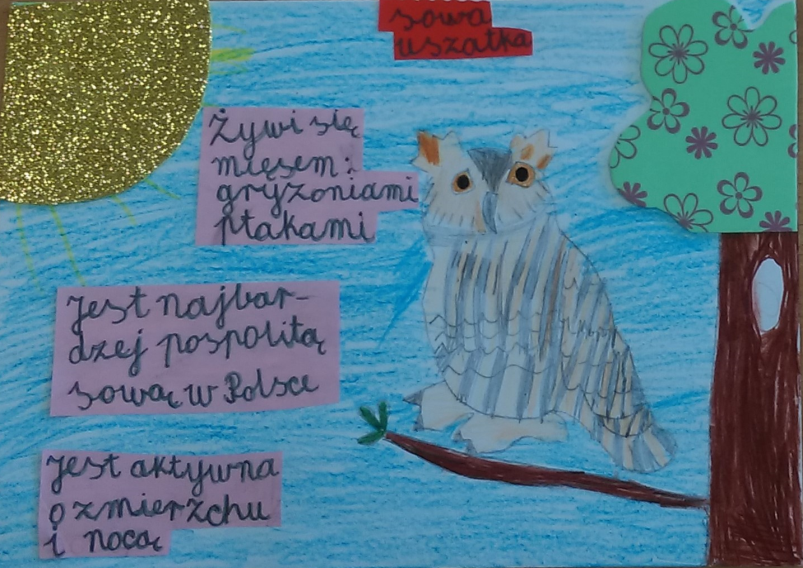 sowa
uszatka
Żywi się
mięsem:
gryzoniami
ptakami
Jest najbar-
dzej pospolitą
sową w Polsce
Jest aktywna
o zmierzchu
i nocą